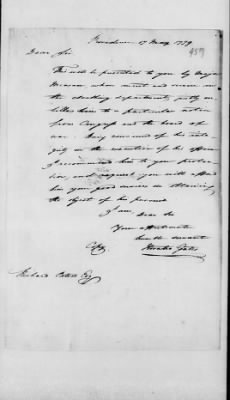 Providence 17 May 1779
459
Dear Sir
This will be presented to you by Major
whose merit and service in
the cloathing department, justly en-
titles him to a particular notice
from Congress and the board of
war. Being convinced of his integ-
rity in the execution of his office
I recommend him to your protec-
tion, and request you will afford
him your good services in obtaining
the object of his pursuit
I am, Dear Sir
Your affectionate
humble servant
Copy
Horatio Gates
Richard Peters Esqr